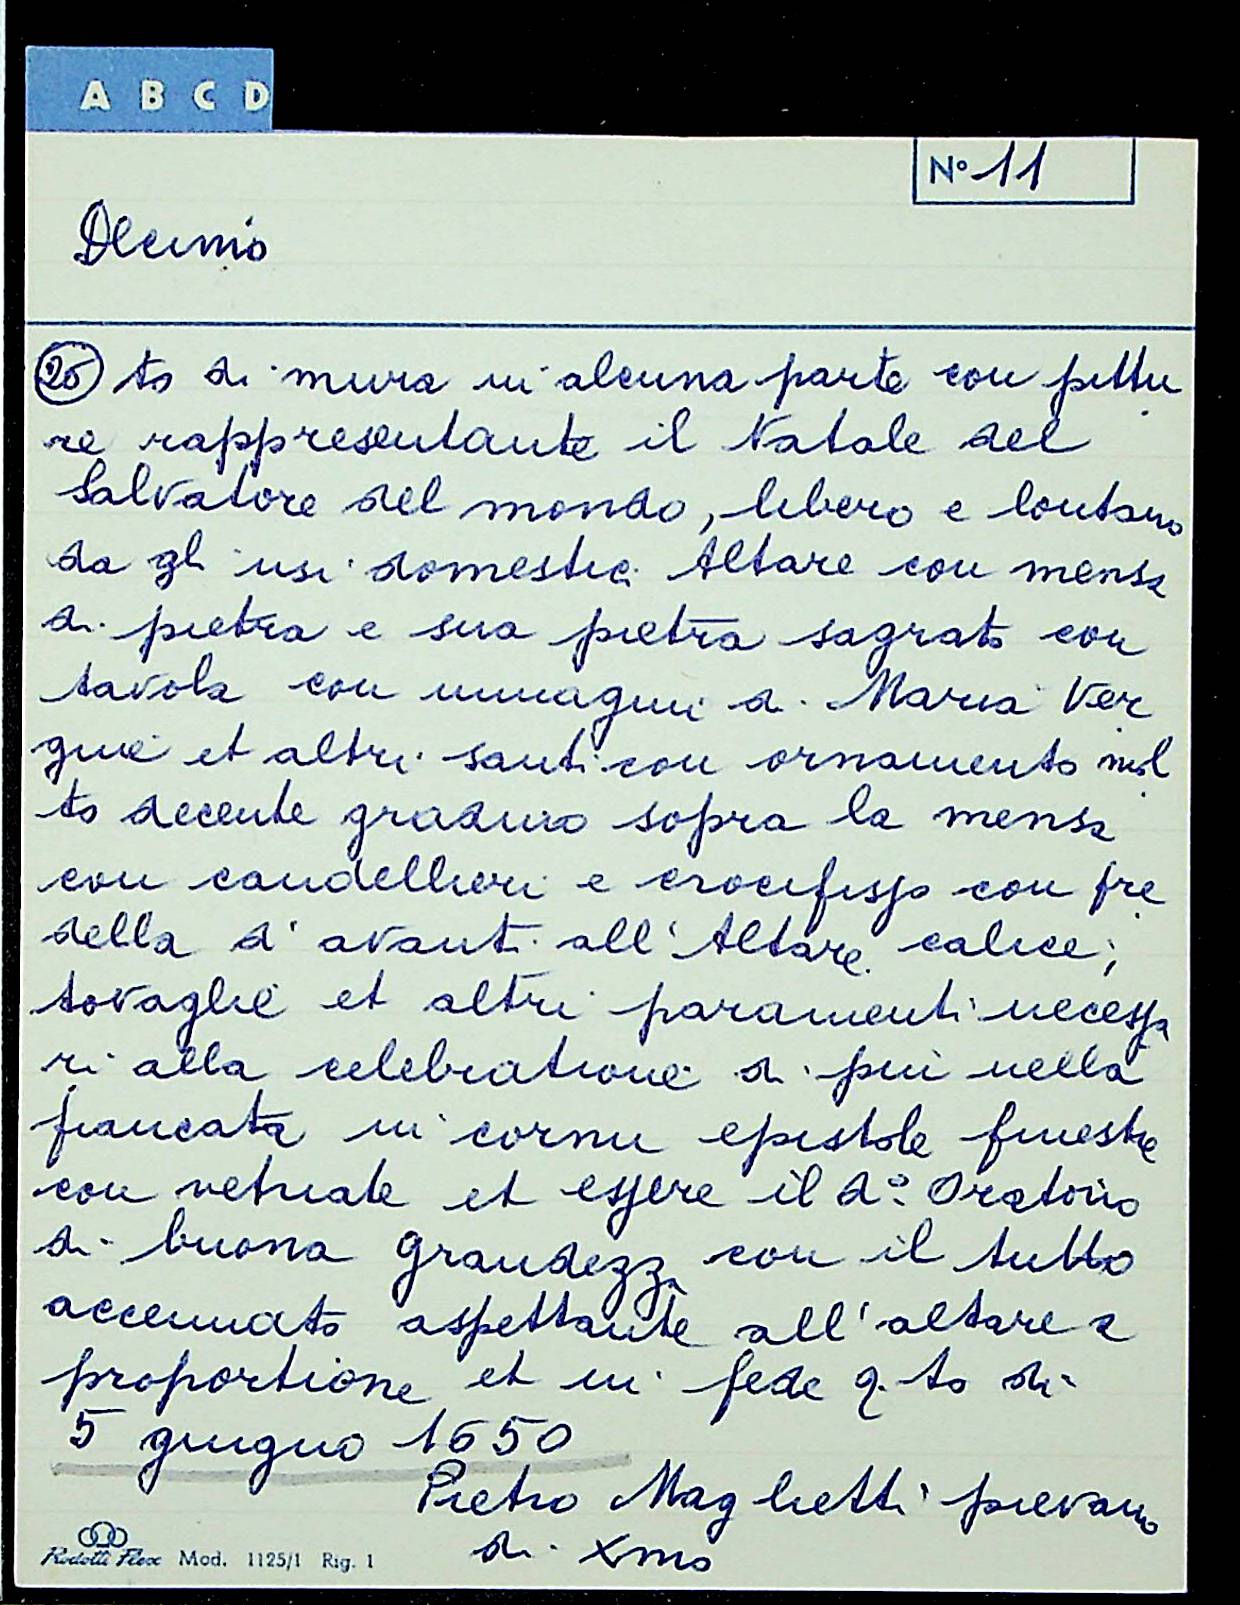 A B C D
N° 11
Decimo
26 to di mura in alcuna parte con pittu
re rappresentante il Natale del
Salvatore del mondo, libero e lontano
da gli usi domestici Altare con mensa
di pietra e sua pietra sagrata con
tavola con immagini di Maria Ver
gine et altri santi con ornamento mol
to decente gradino sopra la mensa
con candellieri e crocifisso con pre
della d'avanti all'Altare calice;
tovaglie et altri paramenti necessa
ri alla celebratione di più nella
fiancata in cornu epistole finestre
con vetriate et essere il d°: Oratorio
di buona grandezza con il tutto
accennato aspettante all'altare a
proportione et in fede q.to di
5 giugno 1650
Pietro Maghetti prevano
di xmo
Rodotti Flex Mod. 1125/1 Rig. 1